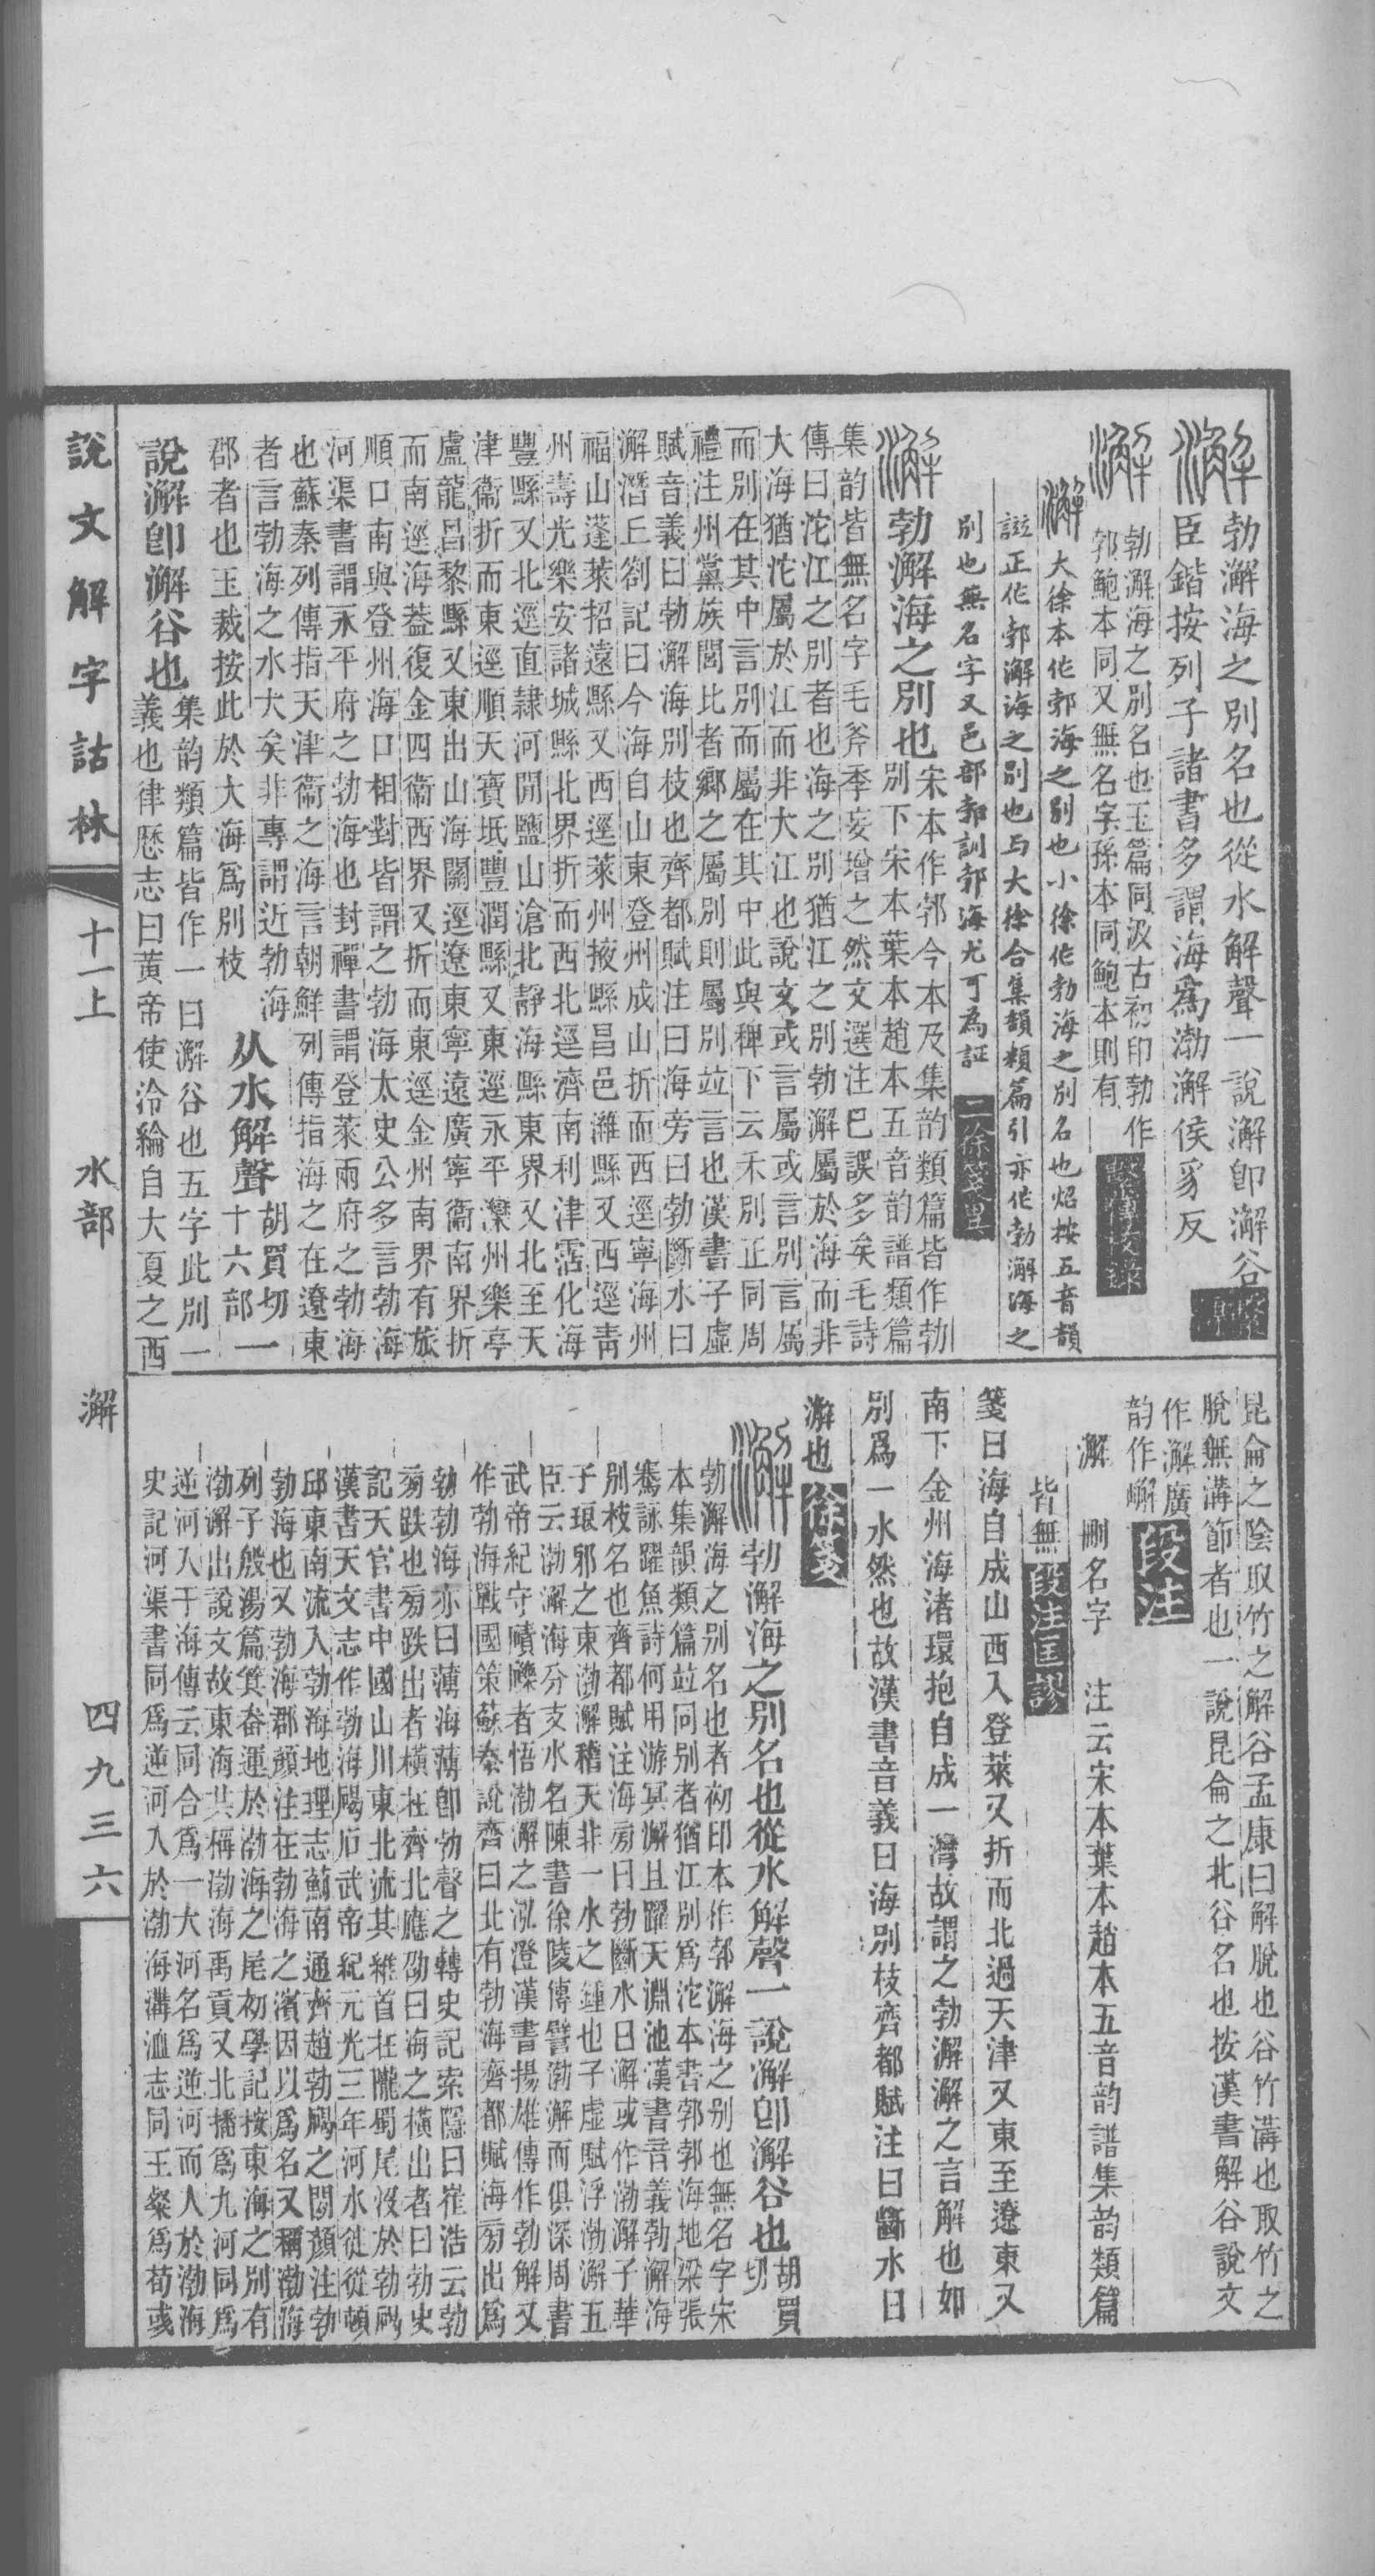 勃澥海之別名也從水解聲一說澥卽澥谷
臣鍇按列子諸書多謂海爲渤澥侯豸反
繫傳
勃澥海之別名也玉篇同汲古初印勃作
郭鮑本同又無名字孫本同鮑本則有
繫傳校錄
澥大徐本作郭海之別也小徐作勃海之別名也炤按五音韻
譜正作郭澥海之別也与大徐合集韻類篇引亦作勃澥海之
別也無名字又邑部郭訓郭海尤可爲証
二徐箋異
澥勃澥海之別也
宋本作郭今本及集韵類篇皆作勃
別下宋本葉本趙本五音韵譜類篇
集韵皆無名字毛斧季妄增之然文選注已誤多矣毛詩
傳曰沱江之別者也海之別猶江之別勃澥屬於海而非
大海猶沱屬於江而非大江也說文或言屬或言別言屬
而別在其中言別而屬在其中此與稗下云禾別正同周
禮注州黨族閭比者鄉之屬別則屬別竝言也漢書子虛
賦音義曰勃澥海別枝也齊都賦注曰海旁曰勃斷水曰
澥潛丘劄記曰今海自山東登州成山折而西逕寧海州
福山蓬萊招遠縣又西逕萊州掖縣昌邑濰縣又西逕靑
州壽光樂安諸城縣北界折而西北逕濟南利津霑化海
豐縣又北逕直隸河閒鹽山滄北靜海縣東界又北至天
津衞折而東逕順天寶坻豐潤縣又東逕永平灤州樂亭
盧龍昌黎縣又東出山海關逕遼東寧遠廣寧衞南界折
而南逕海蓋復金四衞西界又折而東逕金州南界有旅
順口南與登州海口相對皆謂之勃海太史公多言勃海
河渠書謂永平府之勃海也封禪書謂登萊兩府之勃海
也蘇秦列傳指天津衞之海言朝鮮列傳指海之在遼東
者言勃海之水大矣非專謂近勃海
郡者也玉裁按此於大海爲別枝
从水解聲
胡買切
十六部
一
說澥卽澥谷也
集韵類篇皆作一曰澥谷也五字此別一
義也律厤志曰黃帝使泠綸自大夏之西
昆侖之陰取竹之解谷孟康曰解脫也谷竹溝也取竹之
脫無溝節者也一說昆侖之北谷名也按漢書解谷說文
作澥廣
韵作嶰
段注
澥 刪名字 注云宋本葉本趙本五音韵譜集韵類篇
皆無
段注匡謬
箋曰海自成山西入登萊又折而北過天津又東至遼東又
南下金州海渚環抱自成一灣故謂之勃澥澥之言解也如
別爲一水然也故漢書音義曰海別枝齊都賦注曰斷水曰
澥也
徐箋
勃澥海之別名也從水解聲一說澥卽澥谷也
胡買
切
勃澥海之別名也者初印本作郭澥海之別也無名字宋
本集韻類篇竝同別者猶江別爲沱本書郭郭海地梁張
騫詠躍魚詩何用游冥澥且躍天淵池漢書音義勃澥海
別枝名也齊都賦注海旁曰勃斷水曰澥或作渤澥子華
子琅邪之東渤澥稽天非一水之鍾也子虛賦浮渤澥五
臣云渤澥海分支水名陳書徐陵傳譬渤澥而俱深周書
武帝紀守磧礫者悟渤澥之泓澄漢書揚雄傳作勃解又
作勃海戰國策蘇秦說齊曰北有勃海齊都賦海旁出爲
勃勃海亦曰薄海薄卽勃聲之轉史記索隱曰崔浩云勃
旁跌也旁跌出者橫在齊北應劭曰海之橫出者曰勃史
記天官書中國山川東北流其維首在隴蜀尾沒於勃碣
漢書天文志作勃海碣石武帝紀元光三年河水徙從頓
邱東南流入勃海地理志薊南通齊趙勃碣之閒顏注勃
勃海也又勃海郡顏注在勃海之濱因以爲名又稱渤海
列子殷湯篇箕畚運於渤海之尾初學記按東海之別有
渤澥出說文故東海共稱渤海禹貢又北播爲九河同爲
逆河入于海傳云同合爲一大河名爲逆河而入於渤海
史記河渠書同爲逆河入於渤海溝洫志同王粲爲荀彧
說文解字詁林 十一上 水部 澥 四九三六